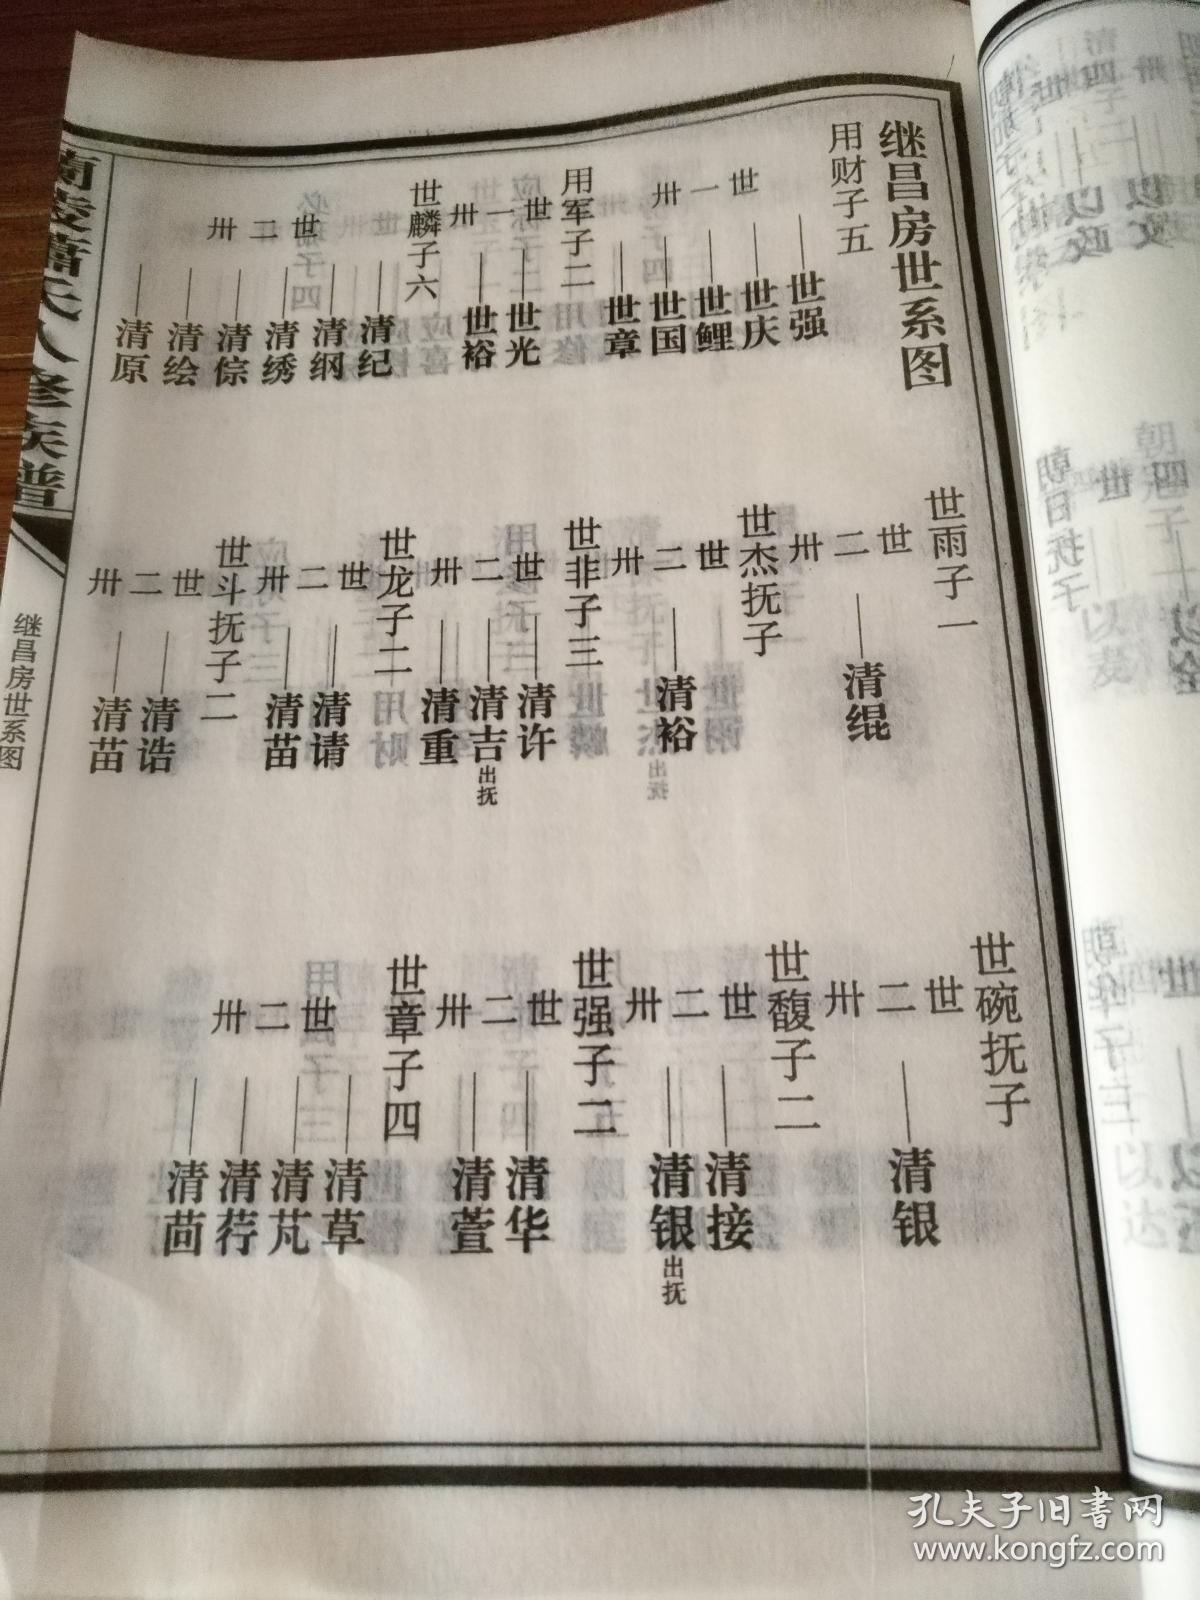 继昌房世系图
用财子五
世一卅
世强
世庆
世鲤
世国
世章
用军子二
世一卅
世光
世裕
世麟子六
世二卅
清纪
清纲
清绣
清倧
清绘
清原
世雨子一
世二卅
清绲
世杰抚子
世二卅
清裕
世非子三
世二卅
清许
清吉出抚
清重
世龙子二
世二卅
清请
清苗
世斗抚子二
世二卅
清诰
清苗
世碗抚子
世二卅
清银
世馥子二
世二卅
清接
清银出抚
世强子二
世二卅
清华
清萱
世章子四
世二卅
清草
清芃
清荇
清茴
兰陵萧氏八修族谱
继昌房世系图
孔夫子旧书网
www.kongfz.com